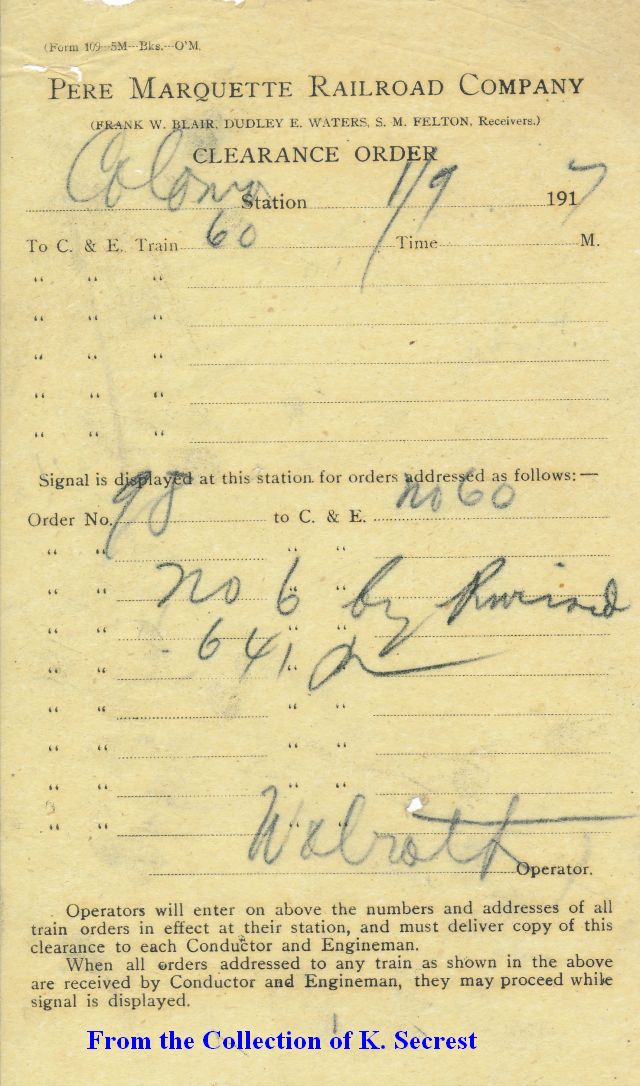 (Form 109—5M—Bks.—O'M.
PERE MARQUETTE RAILROAD COMPANY
(FRANK W. BLAIR, DUDLEY E. WATERS, S. M. FELTON, Receivers.)
CLEARANCE ORDER
Coloma Station 1/9 1917
To C. & E. Train 60 Time M.
" " "
" " "
" " "
" " "
" " "
Signal is displayed at this station for orders addressed as follows:—
Order No. 98 to C. & E. no 60
" " " "
" " no 6 " " by
" " 641 " "
" " " "
" " " "
" " " "
" " " "
" " " "
Walratt Operator.
Operators will enter on above the numbers and addresses of all
train orders in effect at their station, and must deliver copy of this
clearance to each Conductor and Engineman.
When all orders addressed to any train as shown in the above
are received by Conductor and Engineman, they may proceed while
signal is displayed.
From the Collection of K. Secrest